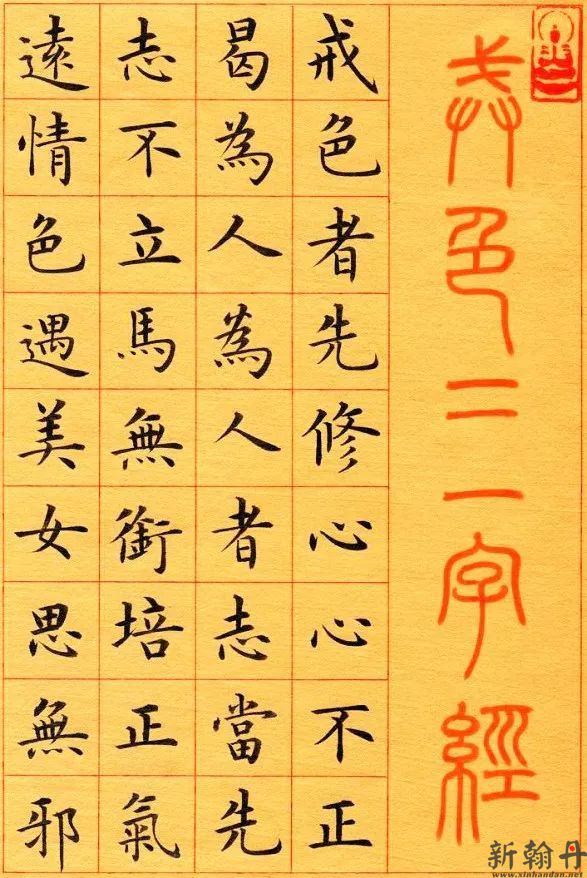 戒色二一字經
戒色者先修心心不正
曷為人為人者志當先
志不立馬無銜培正氣
遠情色遇美女思無邪
新翰丹
www.xinhandan.net